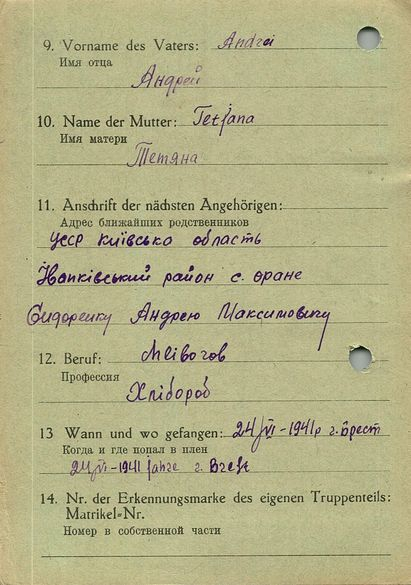 9. Vorname des Vaters: Andrei
Имя отца
Андрей
10. Name der Mutter: Tetjana
Имя матери
Тетяна
11. Anschrift der nächsten Angehörigen:
Адрес ближайших родственников
УССР Київсько область
Іванківський район с. Оране
Сидоренку Андрею Максимовичу
12. Beruf:
Профессия
Хлібороб
13 Wann und wo gefangen: 24/VI-1941р г. Брест
Когда и где попал в плен
24/VI-1941 jahre г. Brest
14. Nr. der Erkennungsmarke des eigenen Truppenteils:
Matrikel-Nr.
Номер в собственной части